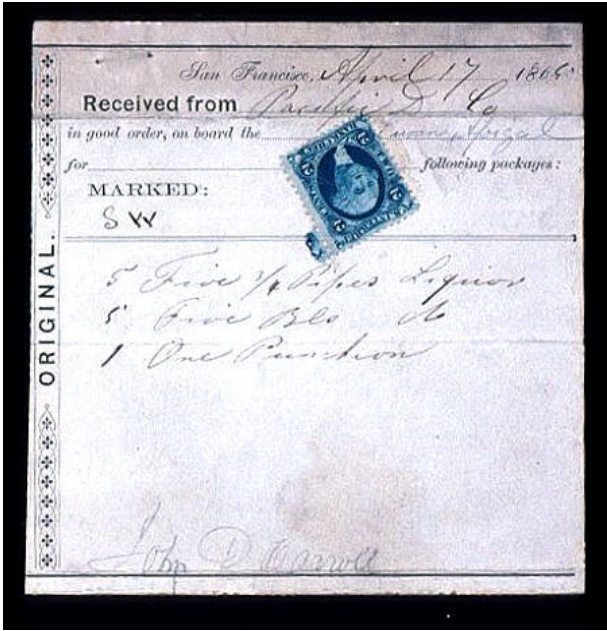 San Francisco, April 17 1865
Received from Pacific D Co
in good order, on board the
for following packages:
MARKED:
S W
5 Five 1/4 Pipes Liquor
5 Five Bls do
1 One Puncheon
John D Carroll
ORIGINAL.